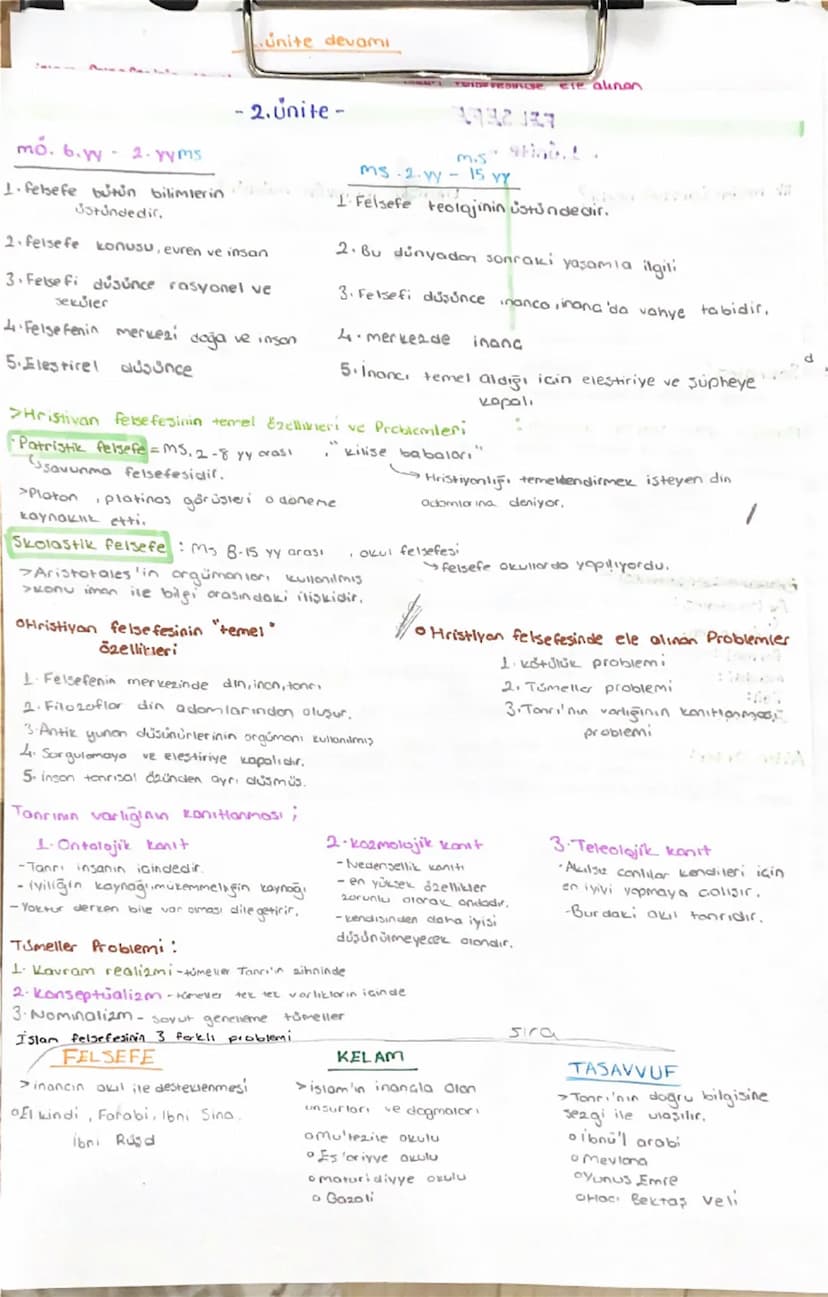 ünite devamı
ele alınan
- 2.ünite -
FELSEFE
mö. 6.yy - 2.yy ms
1. felsefe bütün bilimlerin
üstündedir.
2. felsefe konusu, evren ve insan
3. Felsefi düşünce rasyonel ve
seküler
4. Felsefenin merkezi doğa ve insan
5. Eleştirel düşünce
m.s
ms. 2.yy - 15 yy
1. Felsefe teolojinin üstündedir.
2. Bu dünyadan sonraki yaşamla ilgili
3. Felsefi düşünce inanca, inanç'da vahye tabidir.
4. merkezde inanç
5. İnancı temel aldığı için eleştiriye ve şüpheye
kapalı
d
>Hristiyan felsefesinin temel özellikleri ve Problemleri :
· Patristik felsefe = MS. 2-8 yy arası , "kilise babaları"
savunma felsefesidir.
Hristiyanlığı temellendirmek isteyen din
adamlarına deniyor.
>Platon , platinos görüşleri o döneme
kaynaklık etti.
Skolastik felsefe : Ms 8-15 yy arası , okul felsefesi
felsefe okullarda yapılıyordu.
>Aristotales'in argümanları kullanılmış
>konu iman ile bilgi arasındaki ilişkidir.
o Hristiyan felsefesinin "temel"
özellikleri
1. Felsefenin merkezinde din, inan, tanrı
2. Filozoflar din adamlarından oluşur.
3. Antik yunan düşünürlerinin argümanı kullanılmış
4. Sorgulamaya ve eleştiriye kapalıdır.
5. insan tanrısal özünden ayrı düşmüş.
o Hristiyan felsefesinde ele alınan Problemler
1. kötülük problemi
2. Tümeller problemi
3. Tanrı'nın varlığının kanıtlanması
problemi
Tanrının varlığının kanıtlanması ;
1. Ontolojik kanıt
- Tanrı insanın içindedir.
- iyiliğin kaynağı, mükemmelliğin kaynağı
- Yoktur derken bile var olması dile getirir.
2. kozmolojik kanıt
- Nedensellik kanıtı
- en yüksek özellikler
zorunlu olarak ondadır.
- kendisinden daha iyisi
düşünülmeyecek olandır.
3. Teleolojik kanıt
· Akılsız canlılar kendileri için
en iyiyi yapmaya çalışır.
- Burdaki akıl tanrıdır.
Tümeller Problemi :
1. Kavram realizmi - tümeller Tanrı'n zihninde
2. Konseptüalizm - tümeller tek tek varlıkların içinde
3. Nominalizm - soyut genelleme tümeller
İslam felsefesinin 3 farklı problemi
sıra
FELSEFE
> inancın akıl ile desteklenmesi
o El kindi , Farabi, İbni Sina.
İbni Rüşd
KELAM
> islam'ın inançla olan
unsurları ve dogmaları
o Mu'tezile okulu
o Eş'ariyye okulu
o maturidiyye okulu
o Gazali
TASAVVUF
> Tanrı'nın doğru bilgisine
sezgi ile ulaşılır.
o ibnü'l arabi
o mevlana
o Yunus Emre
o Hacı Bektaş Veli